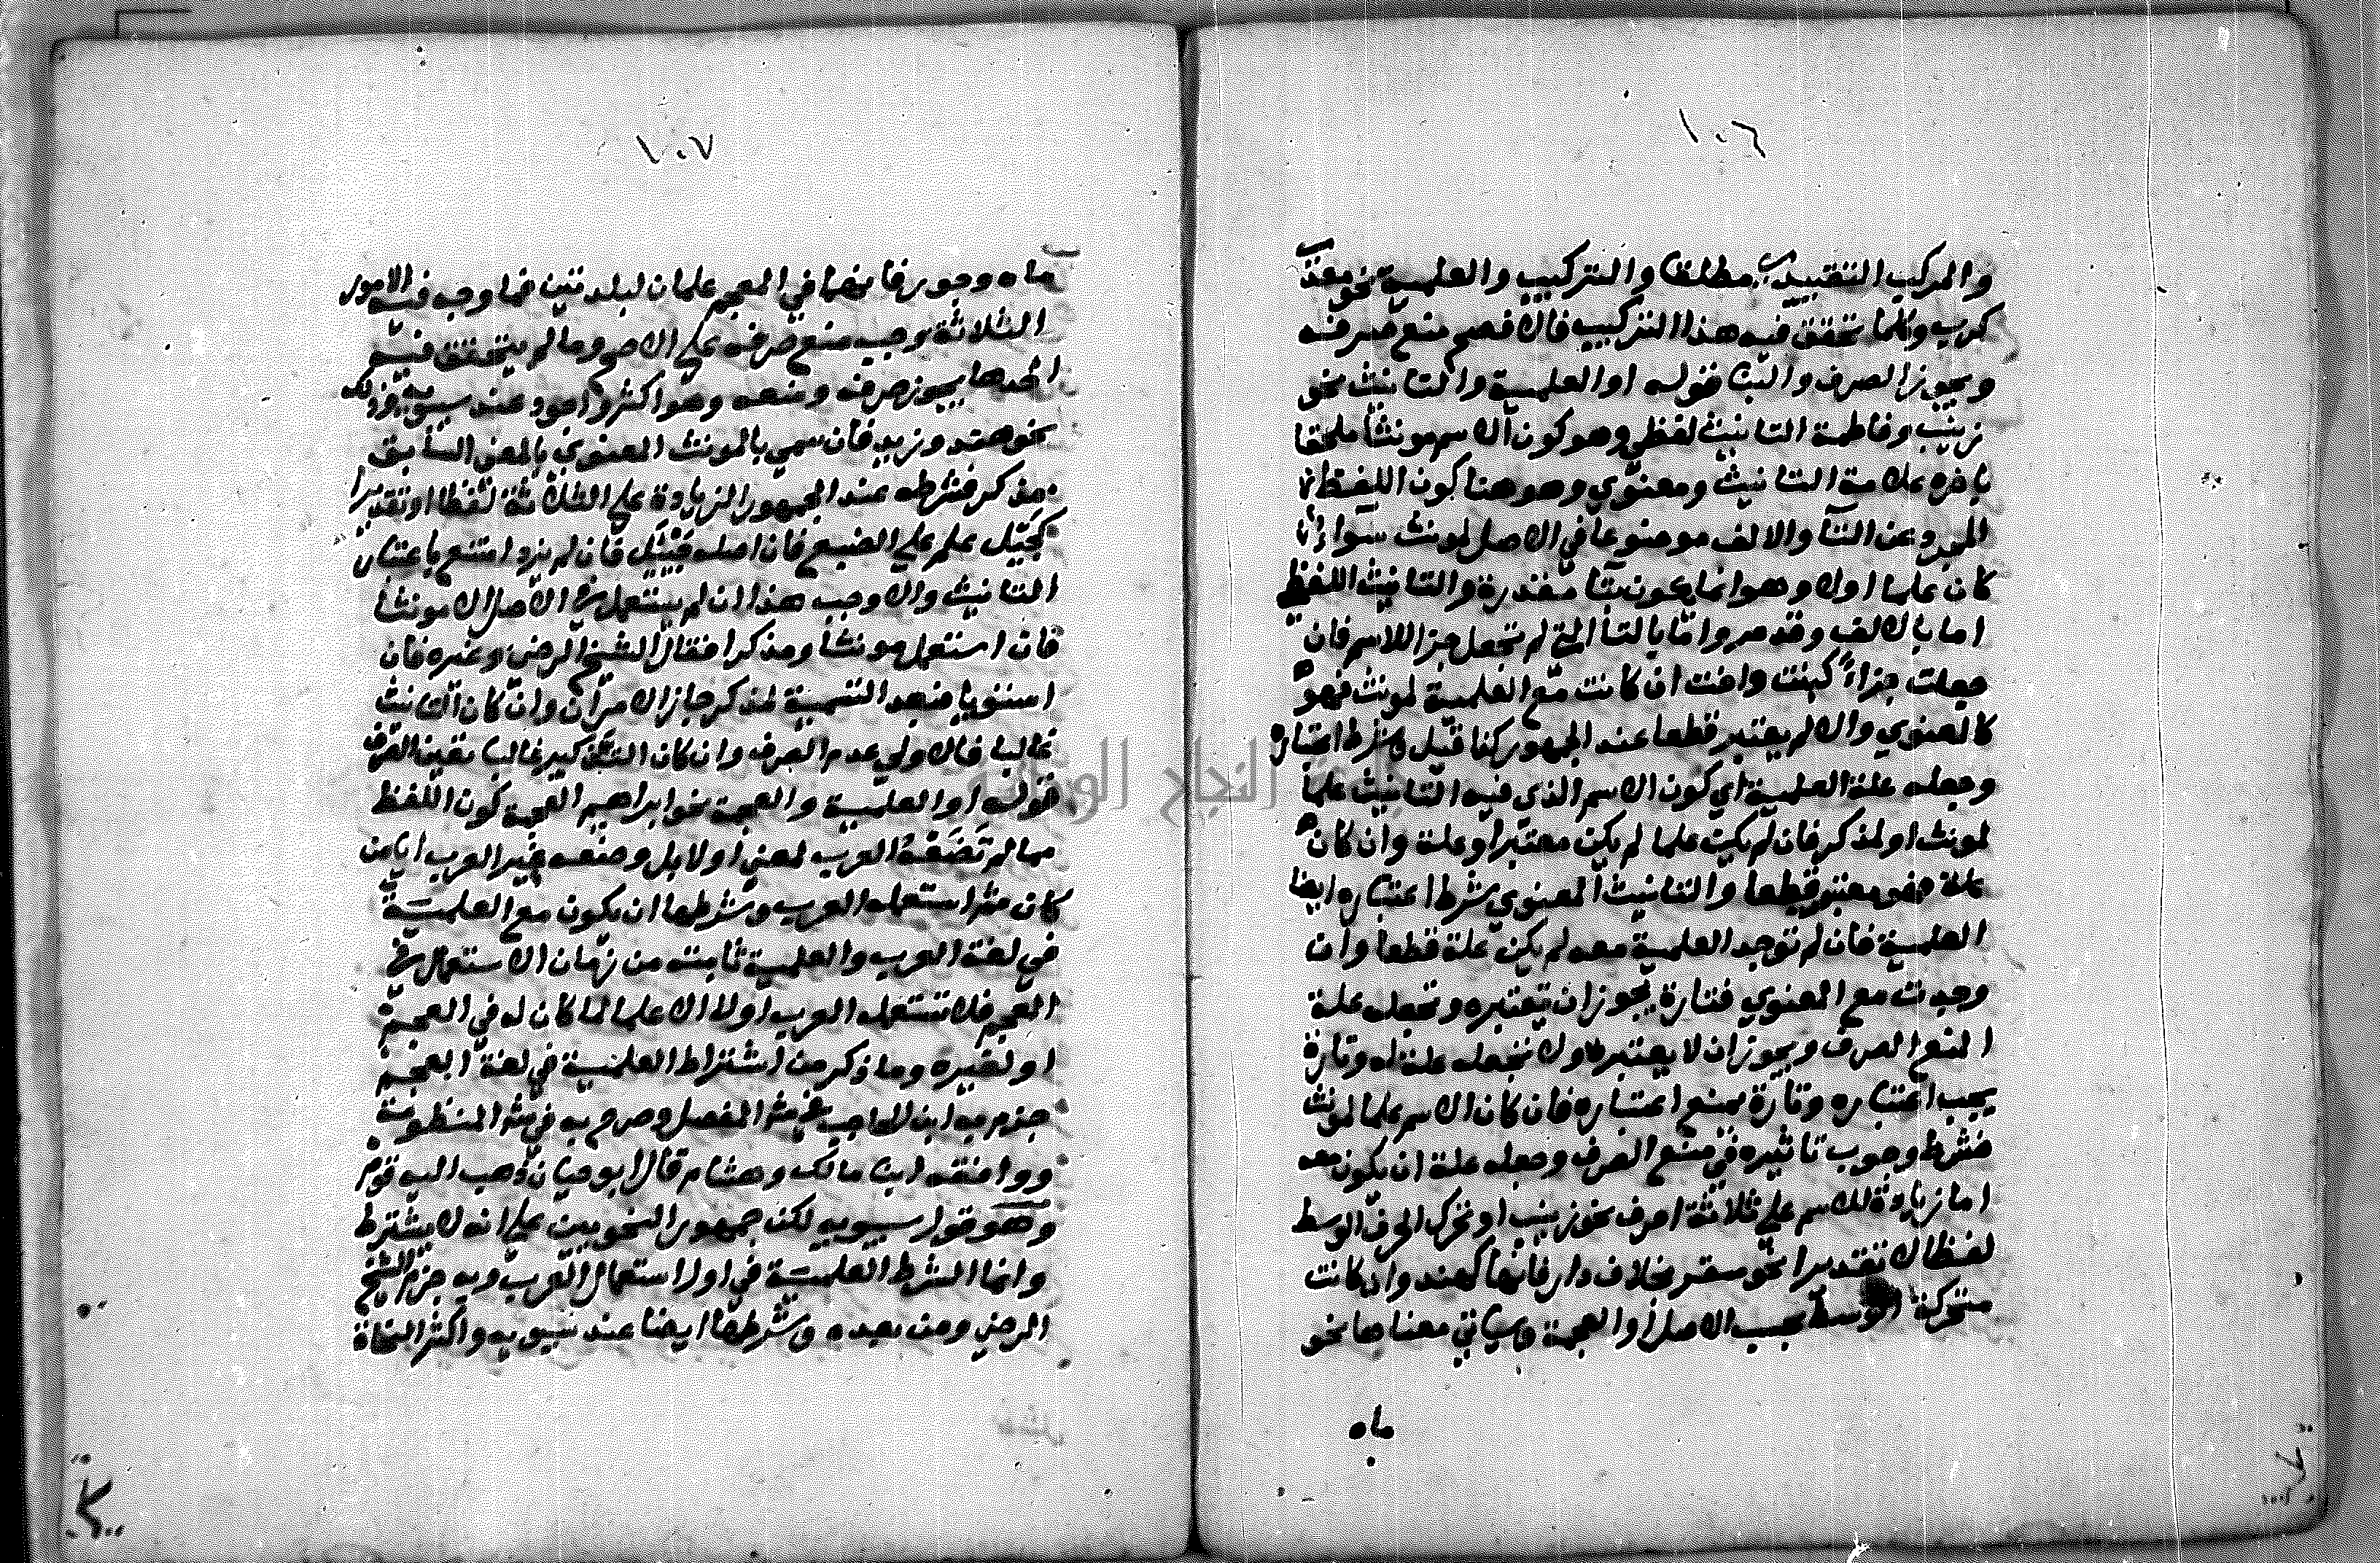 ١٠٦
والمركب التقييدي مطلقا والتركيب والعلمية نحو معد
كرب وكلما تحقق فيه هذا التركيب فالافصح منع صرفه
ويجوز الصرف والبنا قوله او العلمية والتانيث نحو
زينب وفاطمة التانيث لفظي وهو كون الاسم مونثا ملحقا
باخره علامة التانيث ومعنوي وهو هنا كون اللفظ
المجرد عن التآ والالف موضوعا في الاصل لمونث سوآء
كان علما اولا وهو انما يكون بتآ مقدرة والتانيث اللفظي
اما بالالف وقد مر واما بالتآ التي لم تجعل جزا للاسم فان
جعلت جزاء كبنت واخت ان كانت مع العلمية لمونث فهو
كالمعنوي والا لم يعتبر قطعا عند الجمهور كذا قيل وشرط اعتباره
وجعله علة العلمية اي كون الاسم الذي فيه التانيث علما
لمونث او لمذكر فان لم يكن علما لم يكن معتبرا وعلة وان كان
علة فهى معتبر قطعا والتانيث المعنوي شرط اعتباره ايضا
العلمية فان لم توجد العلمية معه لم يكن علة قطعا وان
وجدت مع المعنوي فتارة يجوز ان تعتبره وتجعله علة
المنع الصرف ويجوز ان لا يعتبره ولا تجعله علة له وتارة
يجب اعتباره وتارة يمنع اعتباره فان كان الاسم علما لمونث
فشرط وجوب تاثيره في منع الصرف وجعله علة ان يكون معه
اما زيادة للاسم على ثلاثة احرف نحو زينب او تحرك الحرف الوسط
لفظا لا تقديرا نحو سقر بخلاف دار فانها كهند وان كانت
متحركة الوسط بحسب الاصل او العجمة وسياتي معناها نحو
ماه
١٠٧
ماه وجور فانهما في المعجم علمان لبلدتين فما وجب فيه الامور
الثلاثة وجب منع صرفه على الاصح وما لم يتحقق فيه
احدها يجوز صرفه ومنعه وهو اكثر واجود عند سيبويه وذلك
نحو هند وزيد فان سمي بالمونث المعنوي بالمعنى السابق
مذكر فشرطه عند الجمهور الزيادة على الثلاثة لفظا او تقديرا
كجيل علم على الضبع فان اصله جيئل فان لم يزد امتنع باعتبار
التانيث والا وجب هذا ان لم يستعمل في الاصل الا مونثا
فان استعمل مونثا ومذكرا فقال الشيخ الرضي وغيره فان
استويا فبعد التسمية لمذكر جاز الامران وان كان التانيث
غالبا فالاولى عدم الصرف وان كان التذكير غالبا تعين الصرف
قوله او العلمية والعجمة نحو ابراهيم العجمة كون اللفظ
مما لم تضعه العرب لمعنى اولا بل وضعه غير العرب ايا من
كان ثم استعمله العرب وشرطها ان يكون مع العلمية
في لغة العرب والعلمية ثابتة من زمان الاستعمال في
العجم فلا تستعمله العرب اولا الا علما لما كان له في العجم
او لغيره وما ذكر من اشتراط العلمية في لغة العجم
جزم به ابن الحاجب في شرح المفصل وصرح به في شرح المنظومة
ووافقه ابن مالك وهشام قال ابو حيان ذهب اليه قوم
وهو قول سيبويه لكن جمهور النحويين على انه لا يشترط
وانما الشرط العلمية في اول استعمال العرب وبه جزم الشيخ
الرضي ومن بعده وشرطها ايضا عند سيبويه واكثر النحاة